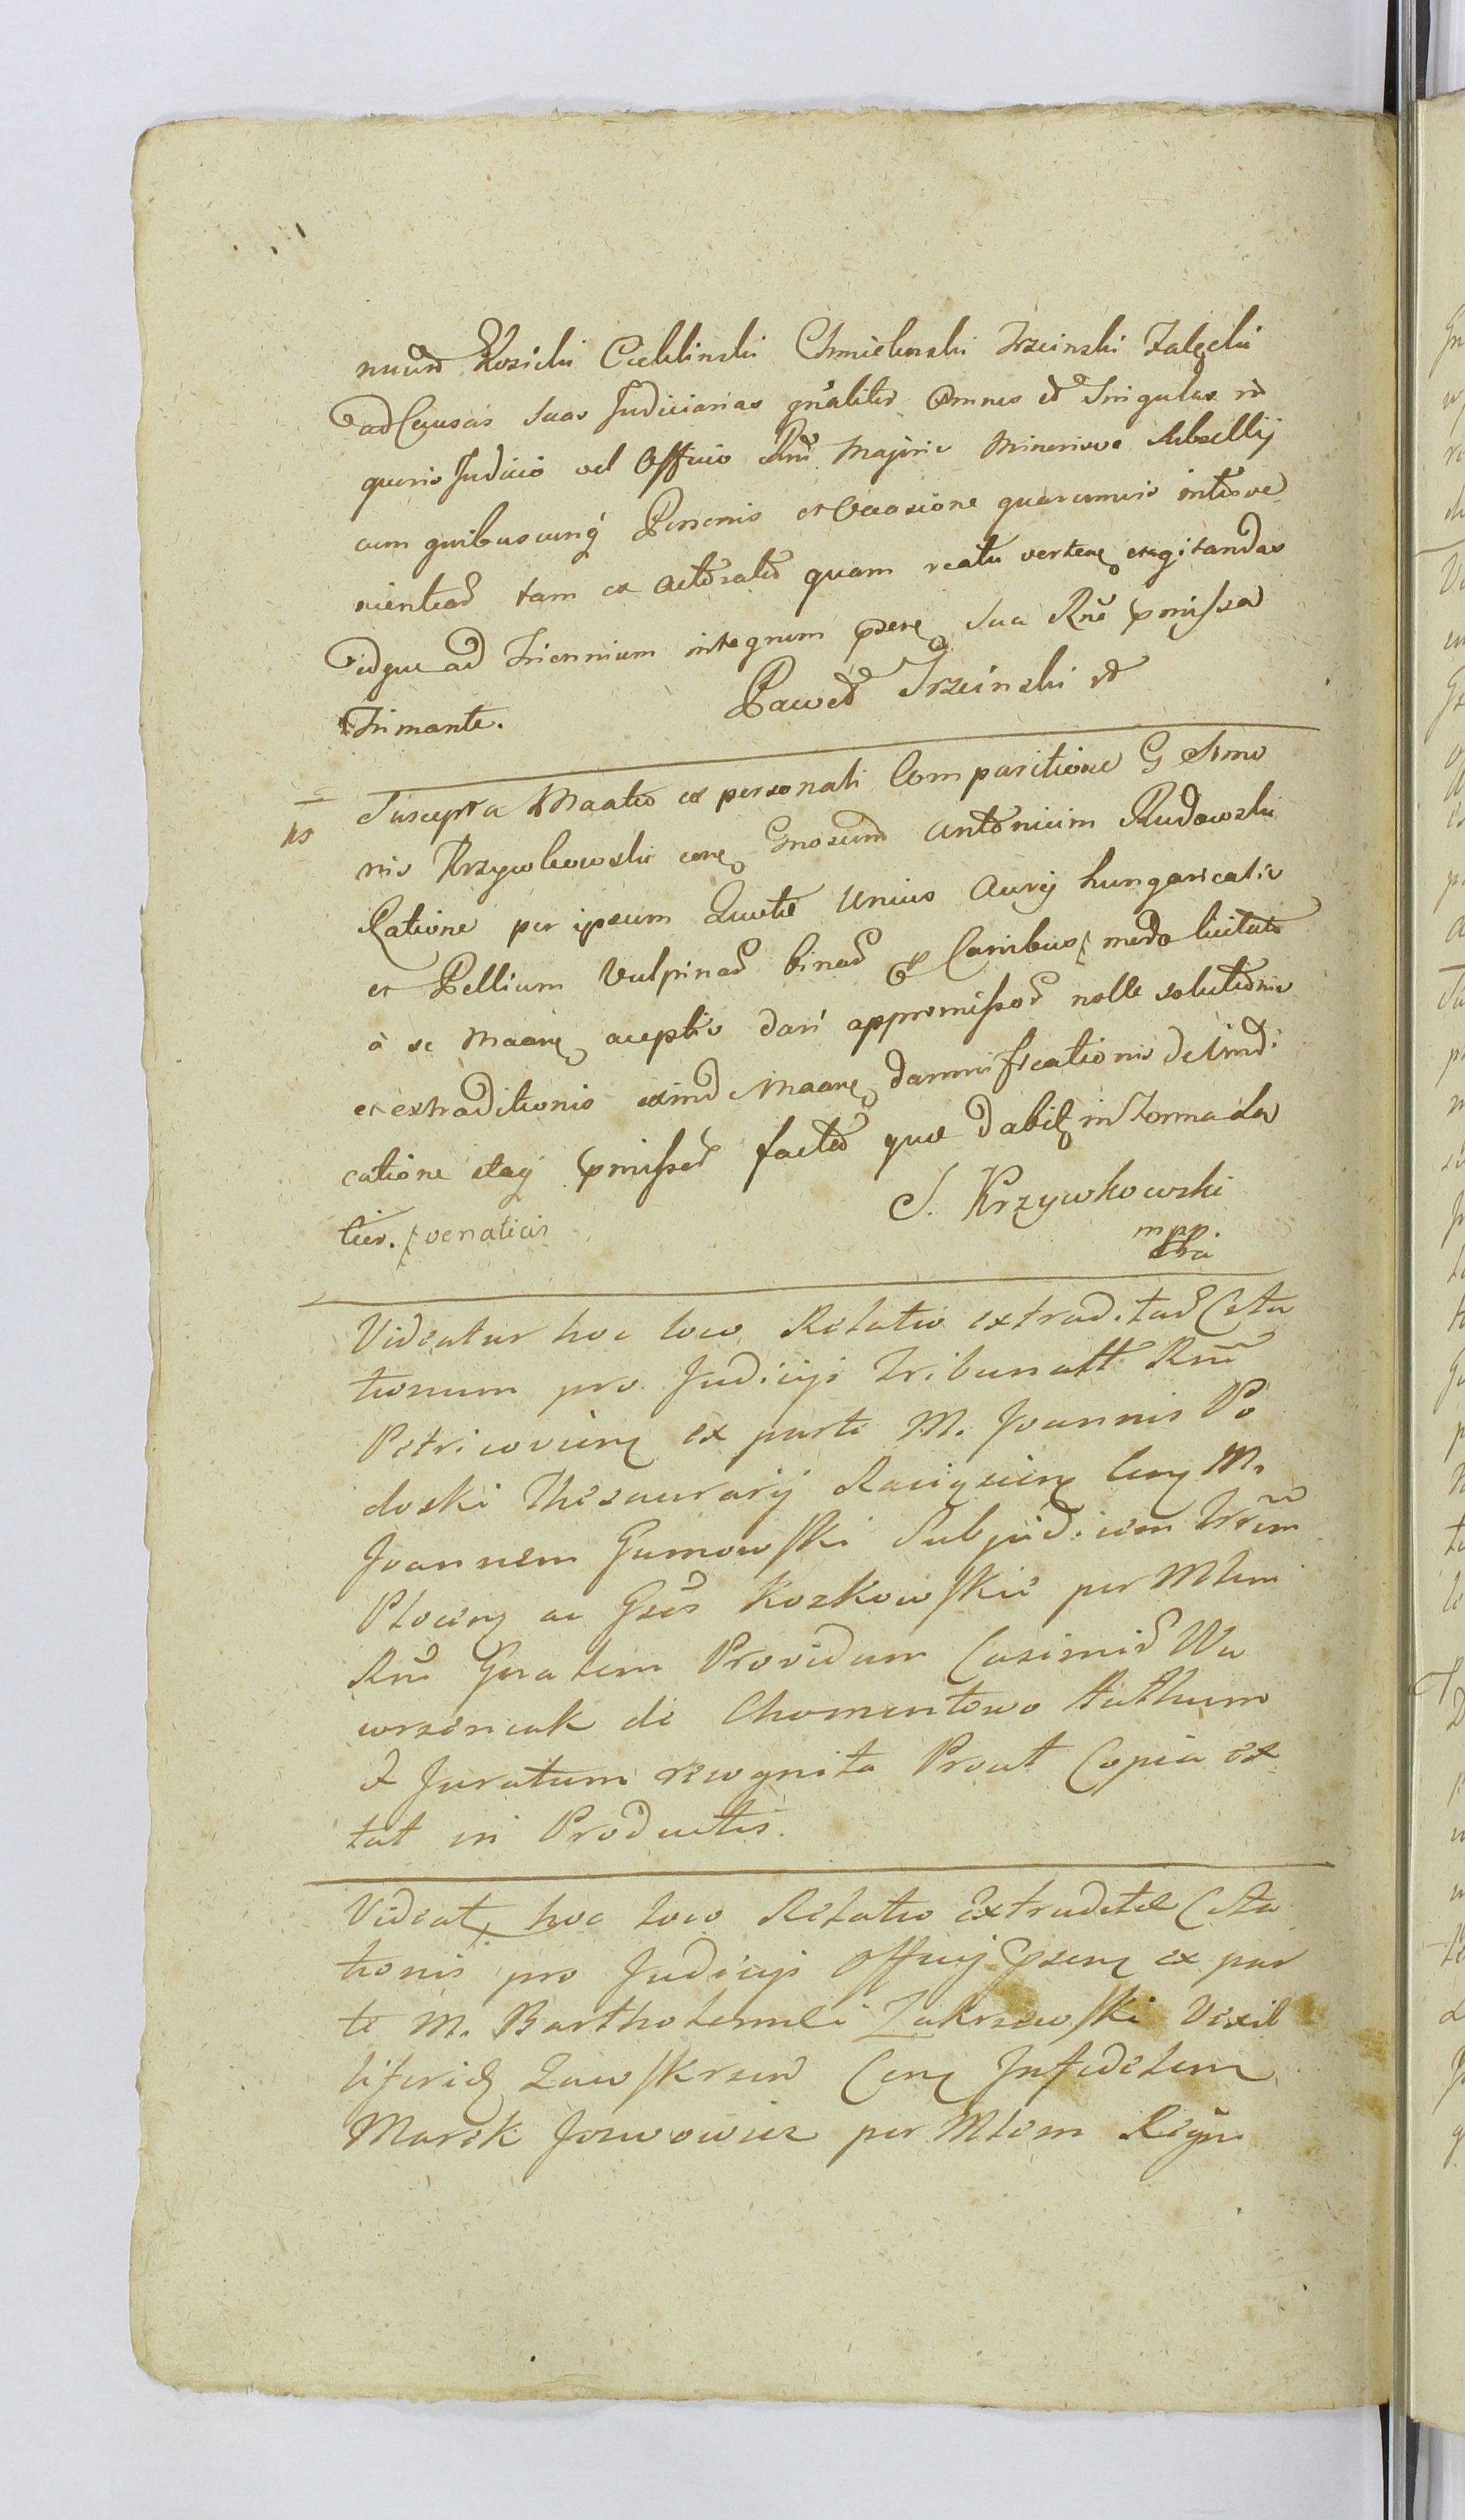 nuum Kosicki Cieklinski Chmielenski Trzcinski Załęcki
ad Causas suas Judiciarias gnāliter omnes et singulas in
quovis Judicio vel Officio Rni Majoris Minorisve Subsellij
cum quibuscunq Personis et Occasione quarumvis interve
nientiad tam ex actoratu quam reatu verten exagitandas
idque ad Triennium integrum psen sua Rne pmissa
firmante. Paweł Trzcinski
Suscepta Maatio ex personali Comparitione G Simo
nis Krzywkowski con Gnosum Antonium Rudowski
Ratione per ipsum Quote unius Aurij hungaricalis
et Pellium Vulpinad binad p Canibus modo licitato
à se Maan aceptis dari appromissod nolle solutionis
et extraditionis exind Maan damnificationis de
catione staij pmissod factd que dabit in Termo La
tius. venaticis S. Krzywkowski
mpp
Videatur hoc loco Relatio extraditad Cita
tionum pro Judicijs Tribunall Rni
Petricovien ex parte M. Joannis Po
doski Thesaurarij Raciązien Con M.
Joannem Gumowski Subjudicem Trēm
Plocen ac Gsos Kozkowskie per Mlem
Rni Gnalem Providum Casimir Wa
wrzencak de Chomentowo Authum
& Juratum recognita Prout Copia ex
tat in Productis.
Videat hoc loco Relatio Extraditæ Cita
tionis pro Judicijs Officij psen ex par
te M. Bartholemei Zakrzewski Vexil
liferid Zawskrzen Con Infidelem
Marek Jozwowicz per Mlem Regni